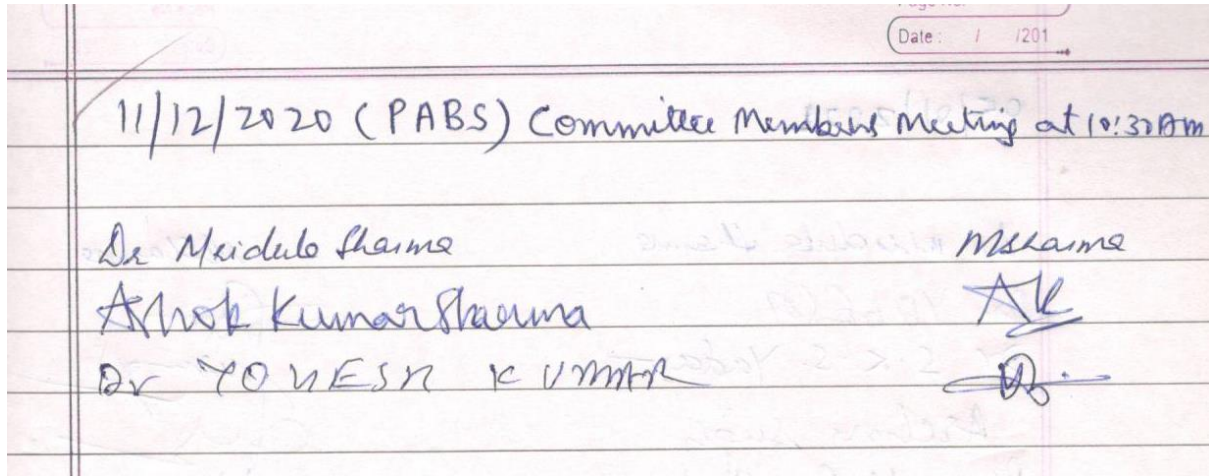 Date : / /201
11/12/2020 (PABS) Committee Members Meeting at 10:30 AM
Dr Mridula Sharma MSharma
Ashok Kumar Sharma AK
Dr YOGESH KUMAR